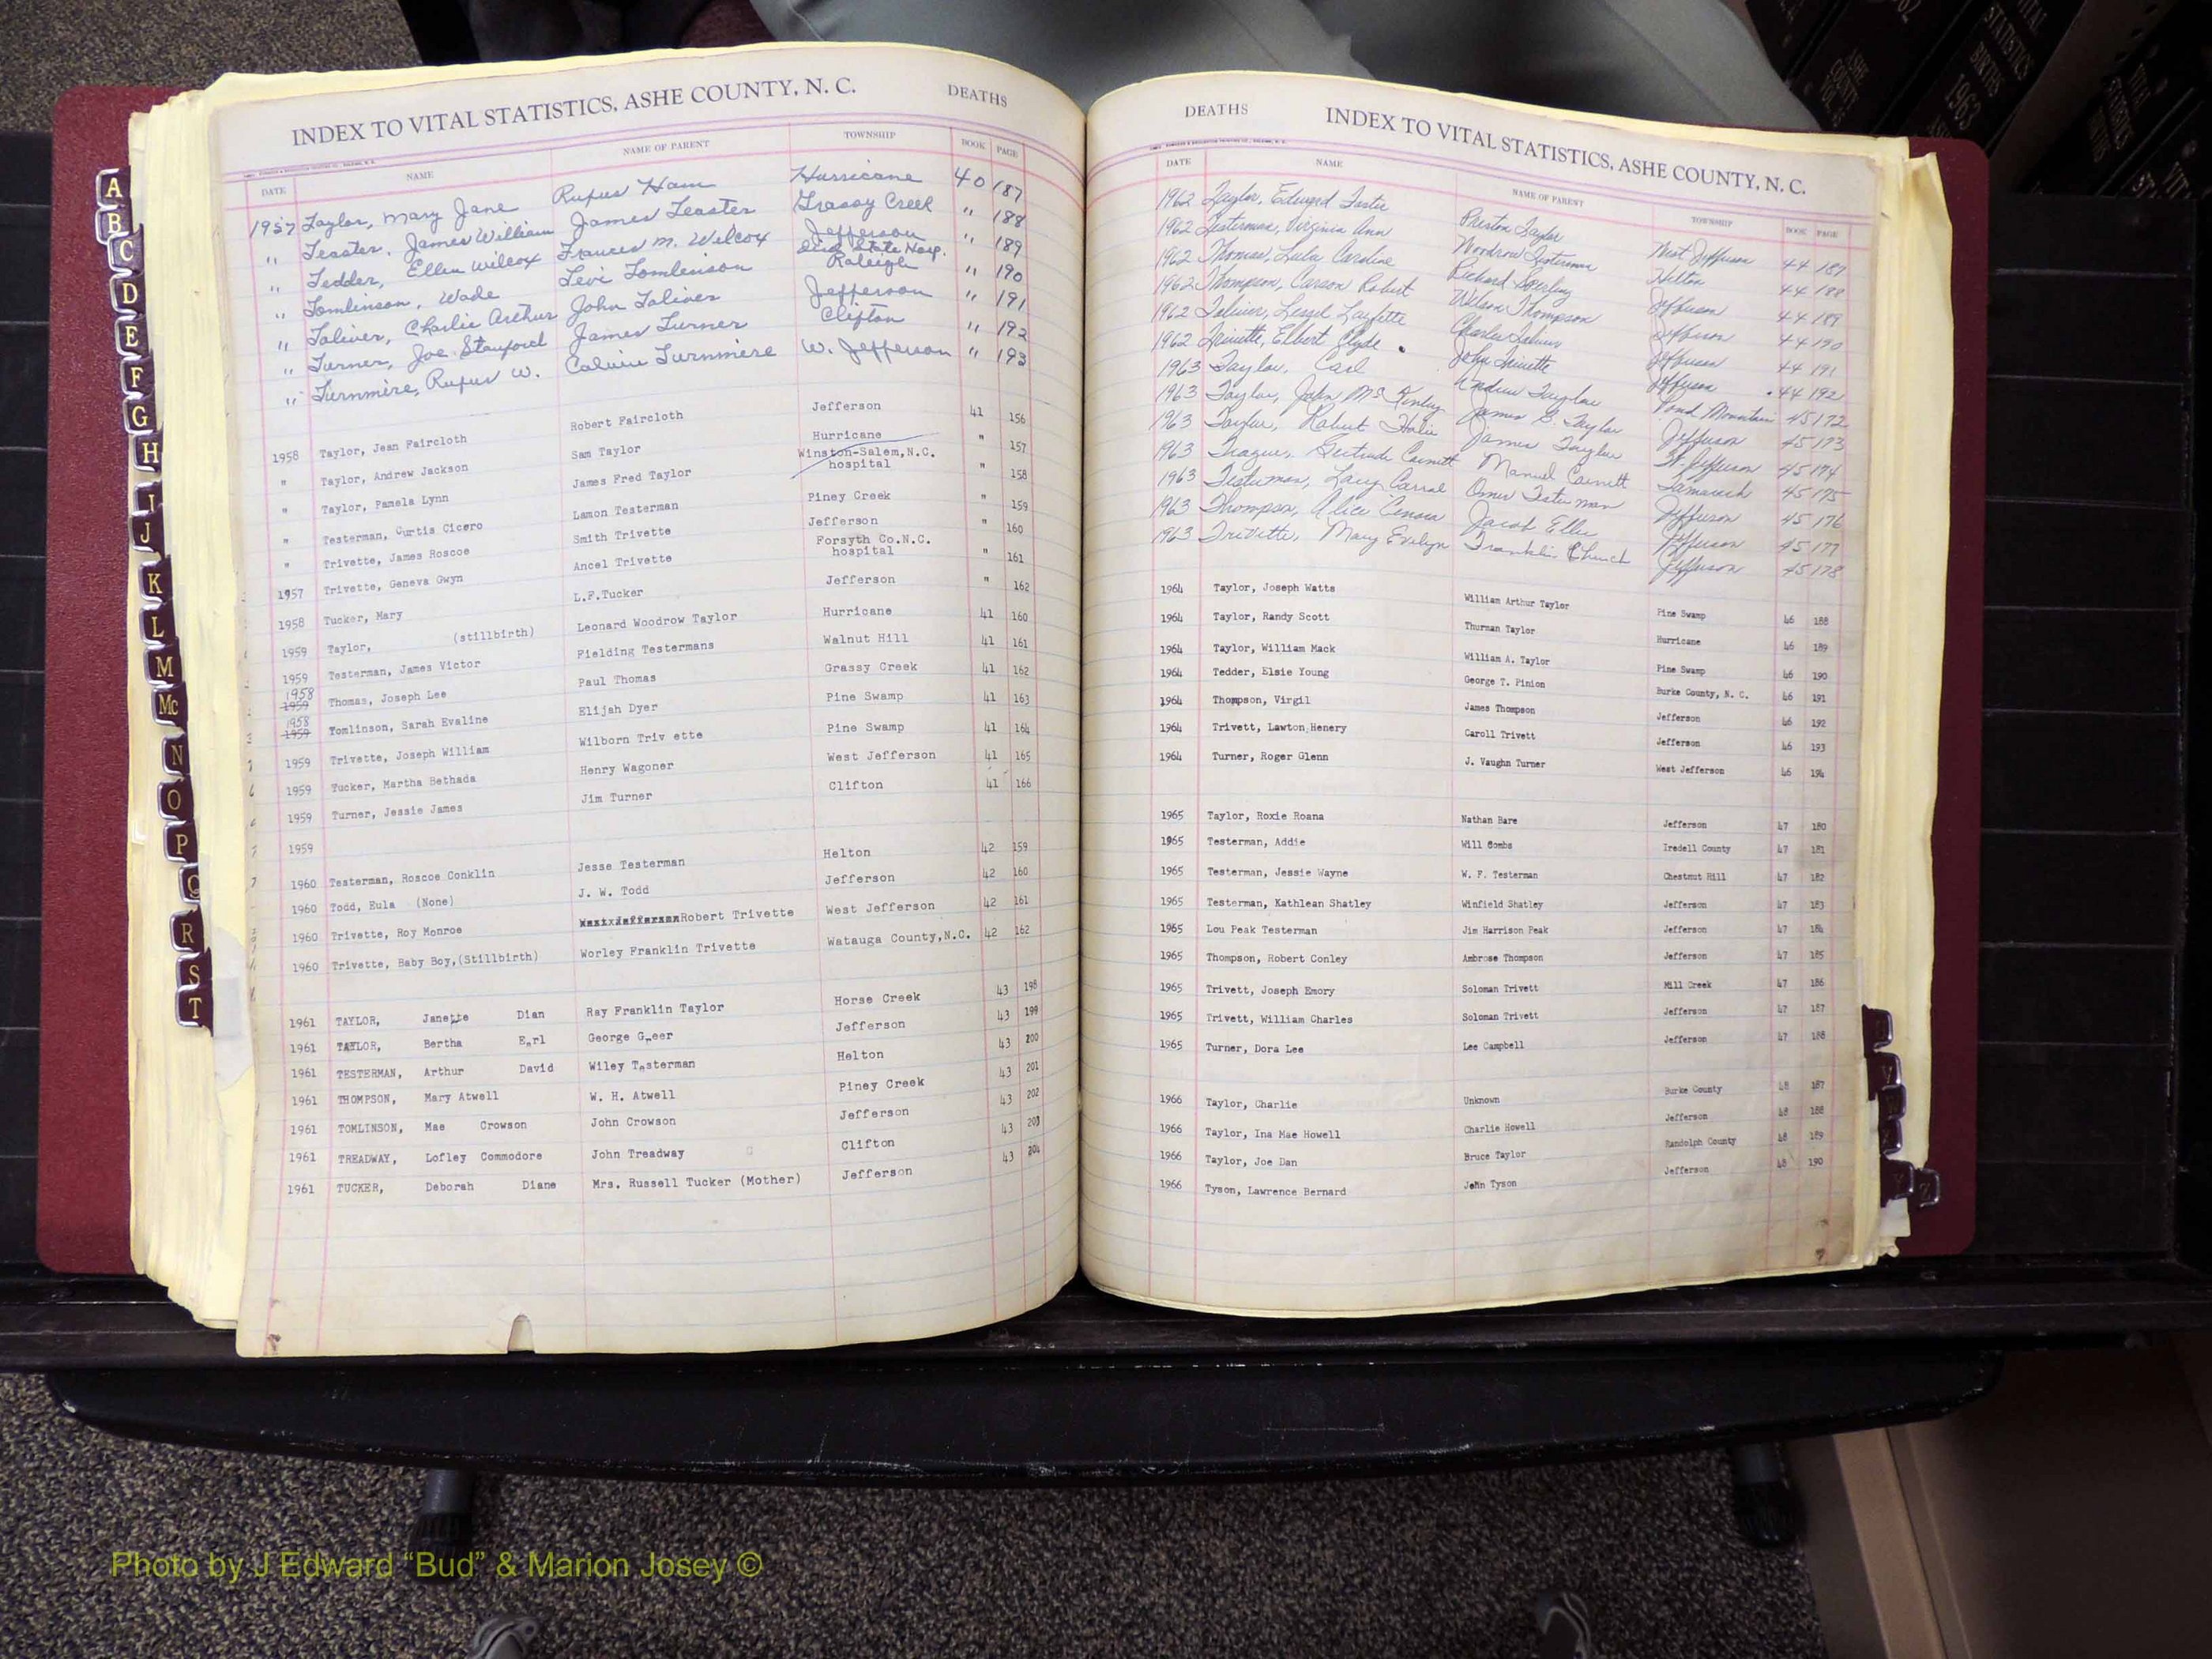 INDEX TO VITAL STATISTICS, ASHE COUNTY, N. C. DEATHS
DATE NAME NAME OF PARENT TOWNSHIP BOOK PAGE
1957 Taylor, Mary Jane Rufus Ham Hurricane 40 187
" Teaster, James William James Teaster Grassy Creek " 188
" Tedder, Ellen Wilcox Frances M. Wilcox Jefferson " 189
" Tomlinson, Wade Levi Tomlinson State Hosp. Raleigh " 190
" Toliver, Charlie Arthur John Toliver Jefferson " 191
" Turner, Joe Stanford James Turner Clifton " 192
" Turnmire, Rufus W. Calvin Turnmire W. Jefferson " 193
1958 Taylor, Jean Faircloth Robert Faircloth Jefferson 41 156
" Taylor, Andrew Jackson Sam Taylor Hurricane " 157
" Taylor, Pamela Lynn James Fred Taylor Winston-Salem,N.C. hospital " 158
" Testerman, Curtis Cicero Lamon Testerman Piney Creek " 159
" Trivette, James Roscoe Smith Trivette Jefferson " 160
1957 Trivette, Geneva Gwyn Ancel Trivette Forsyth Co.N.C. hospital " 161
1958 Tucker, Mary L.F.Tucker Jefferson " 162
1959 Taylor, (stillbirth) Leonard Woodrow Taylor Hurricane 41 160
1959 Testerman, James Victor Fielding Testermans Walnut Hill 41 161
1958 1959 Thomas, Joseph Lee Paul Thomas Grassy Creek 41 162
1958 1959 Tomlinson, Sarah Evaline Elijah Dyer Pine Swamp 41 163
1959 Trivette, Joseph William Wilborn Triv ette Pine Swamp 41 164
1959 Tucker, Martha Bethada Henry Wagoner West Jefferson 41 165
1959 Turner, Jessie James Jim Turner Clifton 41 166
1959
1960 Testerman, Roscoe Conklin Jesse Testerman Helton 42 159
1960 Todd, Eula (None) J. W. Todd Jefferson 42 160
1960 Trivette, Roy Monroe Robert Trivette West Jefferson 42 161
1960 Trivette, Baby Boy,(Stillbirth) Worley Franklin Trivette Watauga County,N.C. 42 162
1961 TAYLOR, Janette Dian Ray Franklin Taylor Horse Creek 43 198
1961 TAYLOR, Bertha Earl George Greer Jefferson 43 199
1961 TESTERMAN, Arthur David Wiley Testerman Helton 43 200
1961 THOMPSON, Mary Atwell W. H. Atwell Piney Creek 43 201
1961 TOMLINSON, Mae Crowson John Crowson Jefferson 43 202
1961 TREADWAY, Lofley Commodore John Treadway Clifton 43 203
1961 TUCKER, Deborah Diane Mrs. Russell Tucker (Mother) Jefferson 43 204
DEATHS INDEX TO VITAL STATISTICS, ASHE COUNTY, N. C.
DATE NAME NAME OF PARENT TOWNSHIP BOOK PAGE
1962 Taylor, Edward Preston Taylor West Jefferson 44 187
1962 Testerman, Virginia Ann Woodrow Testerman Helton 44 188
1962 Thomas, Lula Caroline Richard Jefferson 44 189
1962 Thompson, Carson Robert Wilson Thompson Jefferson 44 190
1962 Toliver, Charles Toliver Jefferson 44 191
1962 Trivette, Elbert Clyde John Trivette Jefferson 44 192
1963 Taylor, Carl Andrew Taylor Pond Mountain 45 172
1963 Taylor, John McKinley James G. Taylor Jefferson 45 173
1963 Taylor, Robert James Taylor W. Jefferson 45 174
1963 Gertrude Manuel 45 175
1963 Testerman, Omer Testerman Jefferson 45 176
1963 Thompson, Alice Jacob Eller Jefferson 45 177
1963 Trivette, Mary Evelyn Franklin Church Jefferson 45 178
1964 Taylor, Joseph Watts William Arthur Taylor Pine Swamp 46 188
1964 Taylor, Randy Scott Thurman Taylor Hurricane 46 189
1964 Taylor, William Mack William A. Taylor Pine Swamp 46 190
1964 Tedder, Elsie Young George T. Pinion Burke County, N. C. 46 191
1964 Thompson, Virgil James Thompson Jefferson 46 192
1964 Trivett, Lawton Henery Caroll Trivett Jefferson 46 193
1964 Turner, Roger Glenn J. Vaughn Turner West Jefferson 46 194
1965 Taylor, Roxie Roana Nathan Bare Jefferson 47 180
1965 Testerman, Addie Will Combs Iredell County 47 181
1965 Testerman, Jessie Wayne W. F. Testerman Chestnut Hill 47 182
1965 Testerman, Kathlean Shatley Winfield Shatley Jefferson 47 183
1965 Lou Peak Testerman Jim Harrison Peak Jefferson 47 184
1965 Thompson, Robert Conley Ambrose Thompson Jefferson 47 185
1965 Trivett, Joseph Emory Soloman Trivett Mill Creek 47 186
1965 Trivett, William Charles Soloman Trivett Jefferson 47 187
1965 Turner, Dora Lee Lee Campbell Jefferson 47 188
1966 Taylor, Charlie Unknown Burke County 48 187
1966 Taylor, Ina Mae Howell Charlie Howell Jefferson 48 188
1966 Taylor, Joe Dan Bruce Taylor Randolph County 48 189
1966 Tyson, Lawrence Bernard John Tyson Jefferson 48 190
A
B
C
D
E
F
G
H
I
J
K
L
M
Mc
N
O
P
Q
R
S
T
Z
ASHE COUNTY
VITAL STATISTICS BIRTHS 1963
Photo by J Edward “Bud” & Marion Josey ©